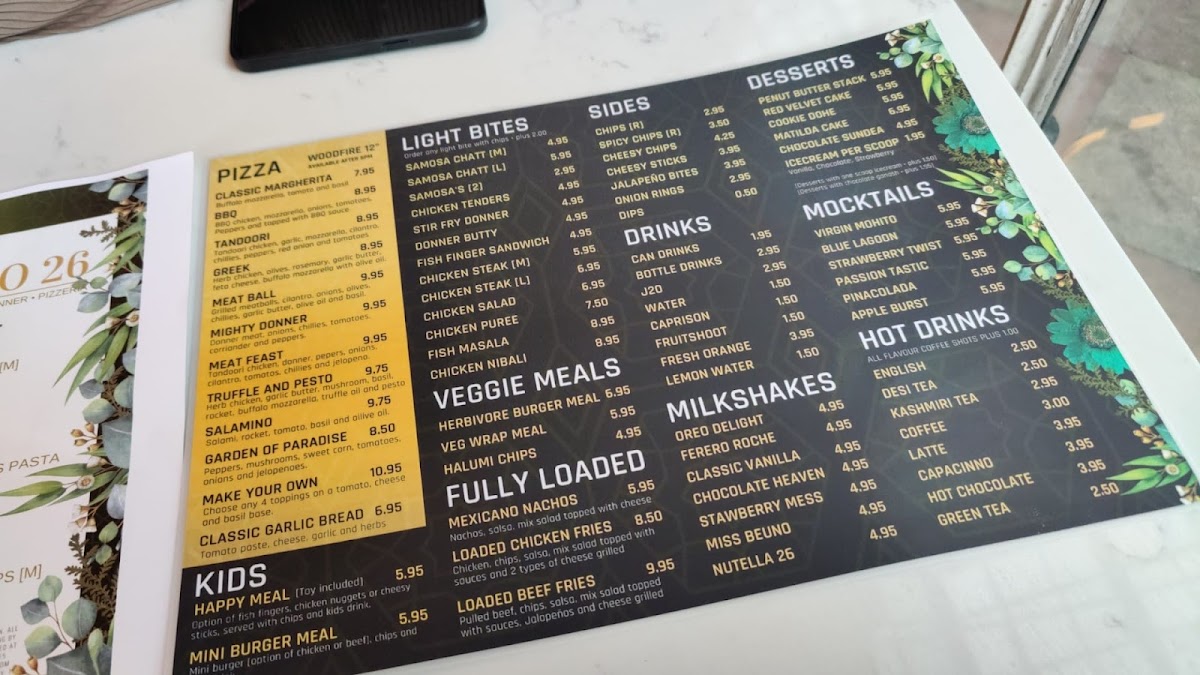 O 26
NNER • PIZZER
[M]
S PASTA
PS [M]
PIZZA
WOODFIRE 12"
AVAILABLE AFTER 5PM
CLASSIC MARGHERITA 7.95
Buffalo mozzarella, tomato and basil
BBQ 8.95
BBQ chicken, mozzarella, onions, tomatoes,
Peppers and topped with BBQ sauce
TANDOORI 8.95
Tandoori chicken, garlic, mozzarella, cilantro,
chillies, peppers, red onion and tomatoes
GREEK 8.95
Herb chicken, olives, rosemary, garlic butter,
feta cheese, buffalo mozzarella with olive oil.
MEAT BALL 9.95
Grilled meatballs, cilantro, onions, olives,
chillies, garlic butter, olive oil and basil.
MIGHTY DONNER 9.95
Donner meat, onions, chillies, tomatoes,
corriander and peppers.
MEAT FEAST 9.95
Tandoori chicken, donner, pepers, onions,
cilantro, tomatos, chillies and jelopeno.
TRUFFLE AND PESTO 9.75
Herb chicken, garlic butter, mushroom, basil,
rocket, buffalo mozzarella, truffle oil and pesto
SALAMINO 9.75
Salami, rocket, tomato, basil and ailive oil.
GARDEN OF PARADISE 8.50
Peppers, mushrooms, sweet corn, tomatoes,
onions and jelopenoes.
MAKE YOUR OWN 10.95
Choose any 4 toppings on a tomato, cheese
and basil base.
CLASSIC GARLIC BREAD 6.95
Tomato paste, cheese, garlic and herbs
KIDS
HAPPY MEAL [Toy included] 5.95
Option of fish fingers, chicken nuggets or cheesy
sticks, served with chips and kids drink.
MINI BURGER MEAL 5.95
Mini burger [option of chicken or beef], chips and
LIGHT BITES
Order any light bite with chips - plus 2.00
SAMOSA CHATT [M] 4.95
SAMOSA CHATT [L] 5.95
SAMOSA'S (2) 2.95
CHICKEN TENDERS 4.95
STIR FRY DONNER 4.95
DONNER BUTTY 4.95
FISH FINGER SANDWICH 4.95
CHICKEN STEAK [M] 5.95
CHICKEN STEAK [L] 6.95
CHICKEN SALAD 6.95
CHICKEN PUREE 7.50
FISH MASALA 8.95
CHICKEN NIBALI 8.95
VEGGIE MEALS
HERBIVORE BURGER MEAL 6.95
VEG WRAP MEAL 5.95
HALUMI CHIPS 4.95
FULLY LOADED
MEXICANO NACHOS 5.95
Nachos, salsa, mix salad topped with cheese
LOADED CHICKEN FRIES 8.50
Chicken, chips, salsa, mix salad topped with
sauces and 2 types of cheese grilled
LOADED BEEF FRIES 9.95
Pulled beef, chips, salsa, mix salad topped
with sauces, Jalapeños and cheese grilled
SIDES
CHIPS (R) 2.95
SPICY CHIPS (R) 3.50
CHEESY CHIPS 4.25
CHEESY STICKS 3.95
JALAPEÑO BITES 3.95
ONION RINGS 2.95
DIPS 0.50
DRINKS
CAN DRINKS 1.95
BOTTLE DRINKS 2.95
J2O 2.95
WATER 1.50
CAPRISON 1.50
FRUITSHOOT 1.50
FRESH ORANGE 3.95
LEMON WATER 1.50
MILKSHAKES
OREO DELIGHT 4.95
FERERO ROCHE 4.95
CLASSIC VANILLA 4.95
CHOCOLATE HEAVEN 4.95
STAWBERRY MESS 4.95
MISS BEUNO 4.95
NUTELLA 26 4.95
DESSERTS
PENUT BUTTER STACK 5.95
RED VELVET CAKE 5.95
COOKIE DOHE 5.95
MATILDA CAKE 5.95
CHOCOLATE SUNDEA 4.95
ICECREAM PER SCOOP 1.95
Vanilla, Chocolate, Strawberry
[Desserts with one scoop icecream - plus 1.50]
[Desserts with chocolate ganash - plus 1.95]
MOCKTAILS
VIRGIN MOHITO 5.95
BLUE LAGOON 5.95
STRAWBERRY TWIST 5.95
PASSION TASTIC 5.95
PINACOLADA 5.95
APPLE BURST 5.95
HOT DRINKS
ALL FLAVOUR COFFEE SHOTS PLUS 1.00
ENGLISH 2.50
DESI TEA 2.50
KASHMIRI TEA 2.95
COFFEE 3.00
LATTE 3.95
CAPACINNO 3.95
HOT CHOCOLATE 3.95
GREEN TEA 2.50